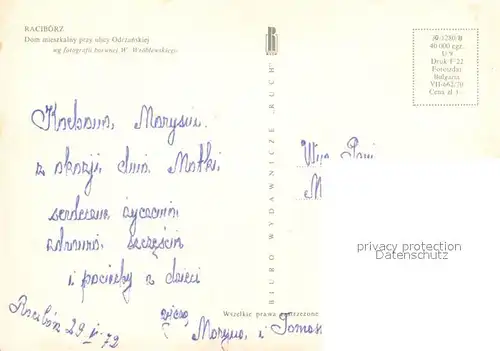 RACIBÓRZ
Dom mieszkalny przy ulicy Odrzańskiej
wg fotografii barwnej W. Wróblewskiego
R
BIURO WYDAWNICZE „RUCH"
30-1280/B
40 000 egz.
U 9
Druk F 22
Poretszdat
Bulgaria
VII-662/70
Cena zł 1.—
Kochana Marysiu.
z okazji dnia Matki
serdeczne życzenia
zdrowia szczęścia
i pociechy z dzieci
życzą
Maryna i Tomek
Racibórz 29 V 72
W.na Pani
M
privacy protection
Datenschutz
Wszelkie prawa zastrzeżone